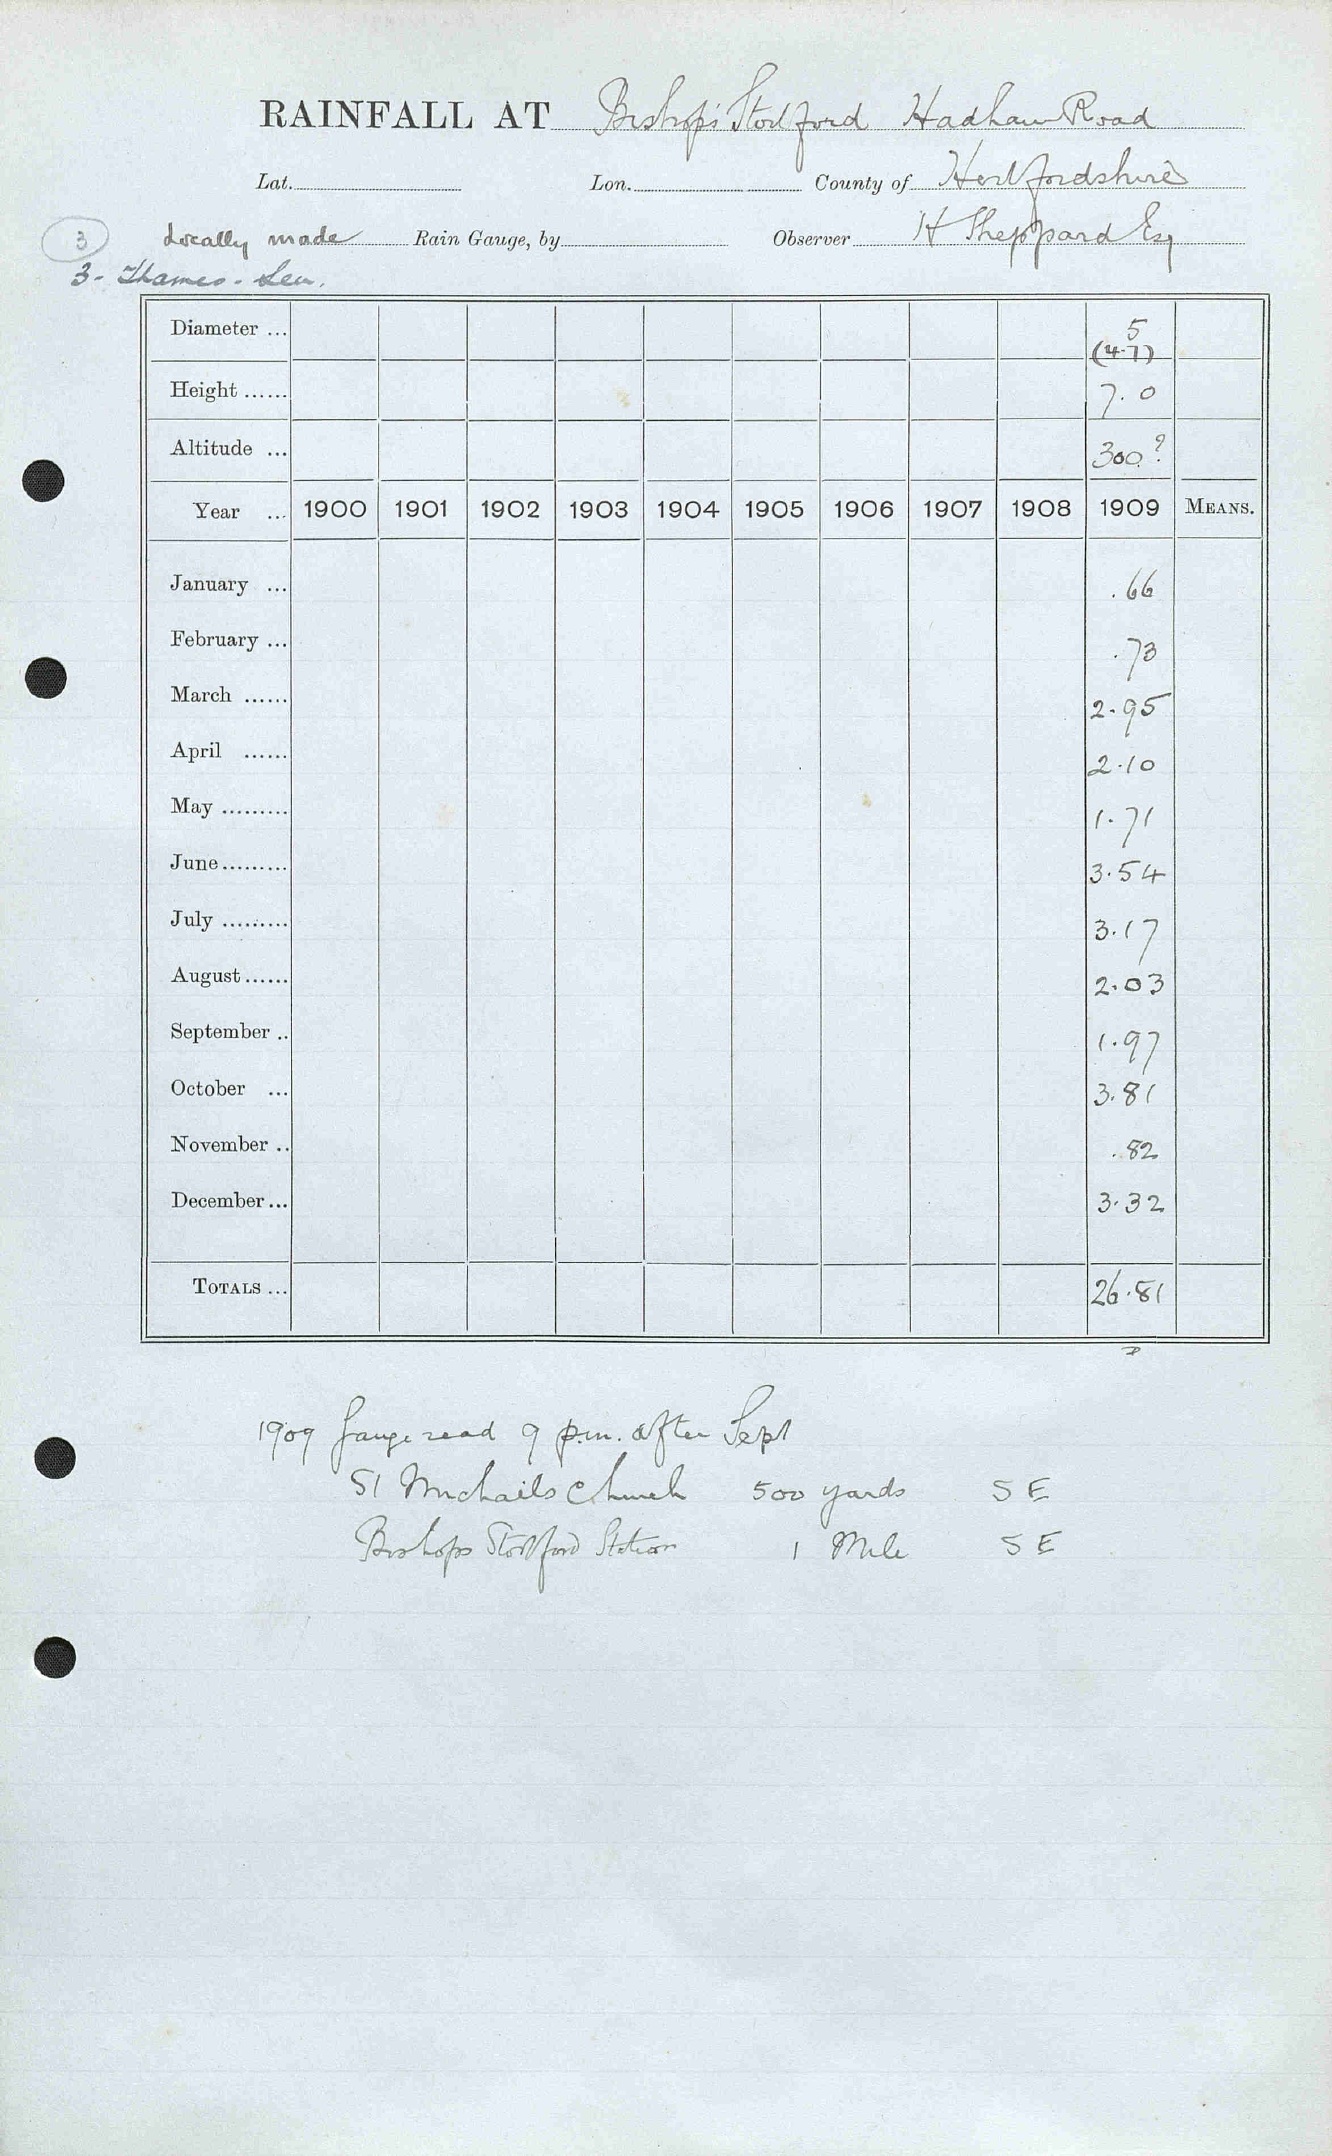 RAINFALL AT Bishop's Stortford Hadham Road
Lat. Lon. County of Hertfordshire
3 Locally made Rain Gauge, by Observer H Sheppard Esq
3 - Thames - Lea.
Diameter ... 5 (4.7)
Height ...... 7.0
Altitude ... 300?
Year ... 1900 1901 1902 1903 1904 1905 1906 1907 1908 1909 MEANS.
January ... .66
February ... .73
March ...... 2.95
April ...... 2.10
May ......... 1.71
June......... 3.54
July ......... 3.17
August...... 2.03
September .. 1.97
October ... 3.81
November .. .82
December... 3.32
TOTALS ... 26.81
1909 Gauge read 9 p.m. after Sept
St Michaels Church 500 yards S E
Bishops Stortford Station 1 Mile S E